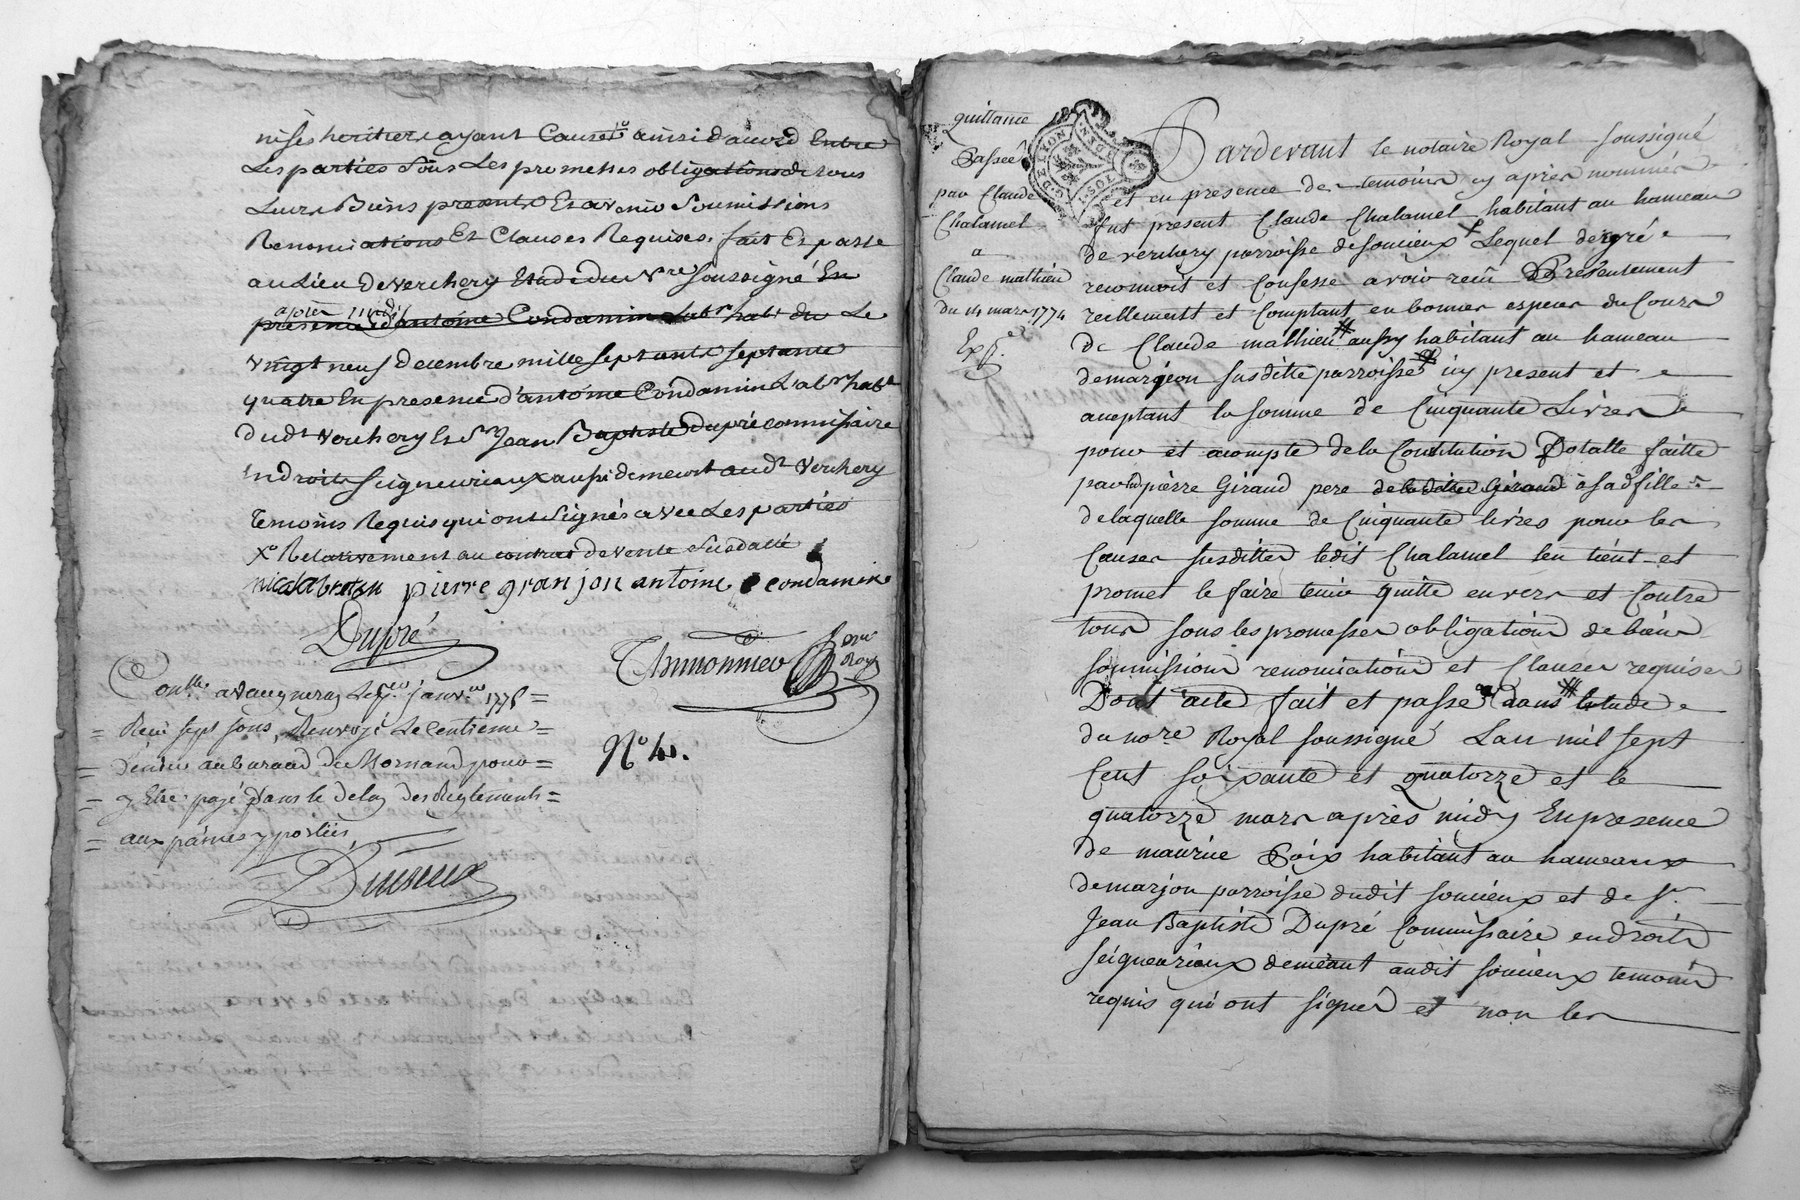 nises heritiers ayant Cause ainsi d'accord Entre
Les parties Sous Les promesses obligations de tous
Leurs Biens presents Et avenir Soumissions
Renonciations Et Clauses Requises. fait Et passé
au Lieu de verchery soussigné En
après midy
presence d'antoine Condamin Lab.r hab.t du Le
vingt neuf Decembre mille sept cents septante
quatre En presence d'antoine Condamin Lab.r hab.t
dud.t verchery Et S.r Jean Baptiste Dupré commissaire
En droits seigneuriaux aussi demeur.t aud.t verchery
temoins Requis qui ont Signés avec Les parties
X.o Relativement au contrat de vente Susdatté
pierre granjon antoine condamin
Dupré
Thimonnier
N.o 4.
Con.llé a vaugneray Le janv.er 1775
= Reçu sept sous, Renvoyé Le Centieme =
= Denier au Bureau de Mornand pour =
= y Etre payé dans le delay des Reglements =
= aux peines y portées
quittance
Passée
par Claude
Chalamel
a
Claude mathieu
du 14 mars 1774
Exp.e
G. DE LYON
Pardevant le notaire Royal soussigné
et en presence des temoins cy après nommés
fut present Claude Chalamel habitant au hameau
de verchery parroisse de soucieux Lequel de gré
reconnoit et Confesse avoir reçu Presentement
reellement et Comptant en bonnes especes du Cours
de Claude mathieu aussy habitant au hameau
de marjeon susditte parroisse icy present et
aceptant la somme de Cinquante Livres
pour et acompte de la Constitution Dotalle faitte
par pierre Giraud pere de laditte Giraud à sad. fille
de laquelle somme de Cinquante livres pour les
Causes susdittes ledit Chalamel l'en tient et
promet le faire tenir quitte envers et Contre
tous sous les promesses obligations de biens
soumissions renonciations et Clauses requises
Dont acte fait et passé dans letude
du no.re Royal soussigné Lan mil sept
Cent soixante et quatorze et le
quatorze mars après midy En presence
de maurice habitant au hameaux
de marjon parroisse dudit soucieux et de S.r
Jean Baptiste Dupré Commissaire en droits
seigneuriaux demeurant audit soucieux temoins
requis qui ont signés et non les